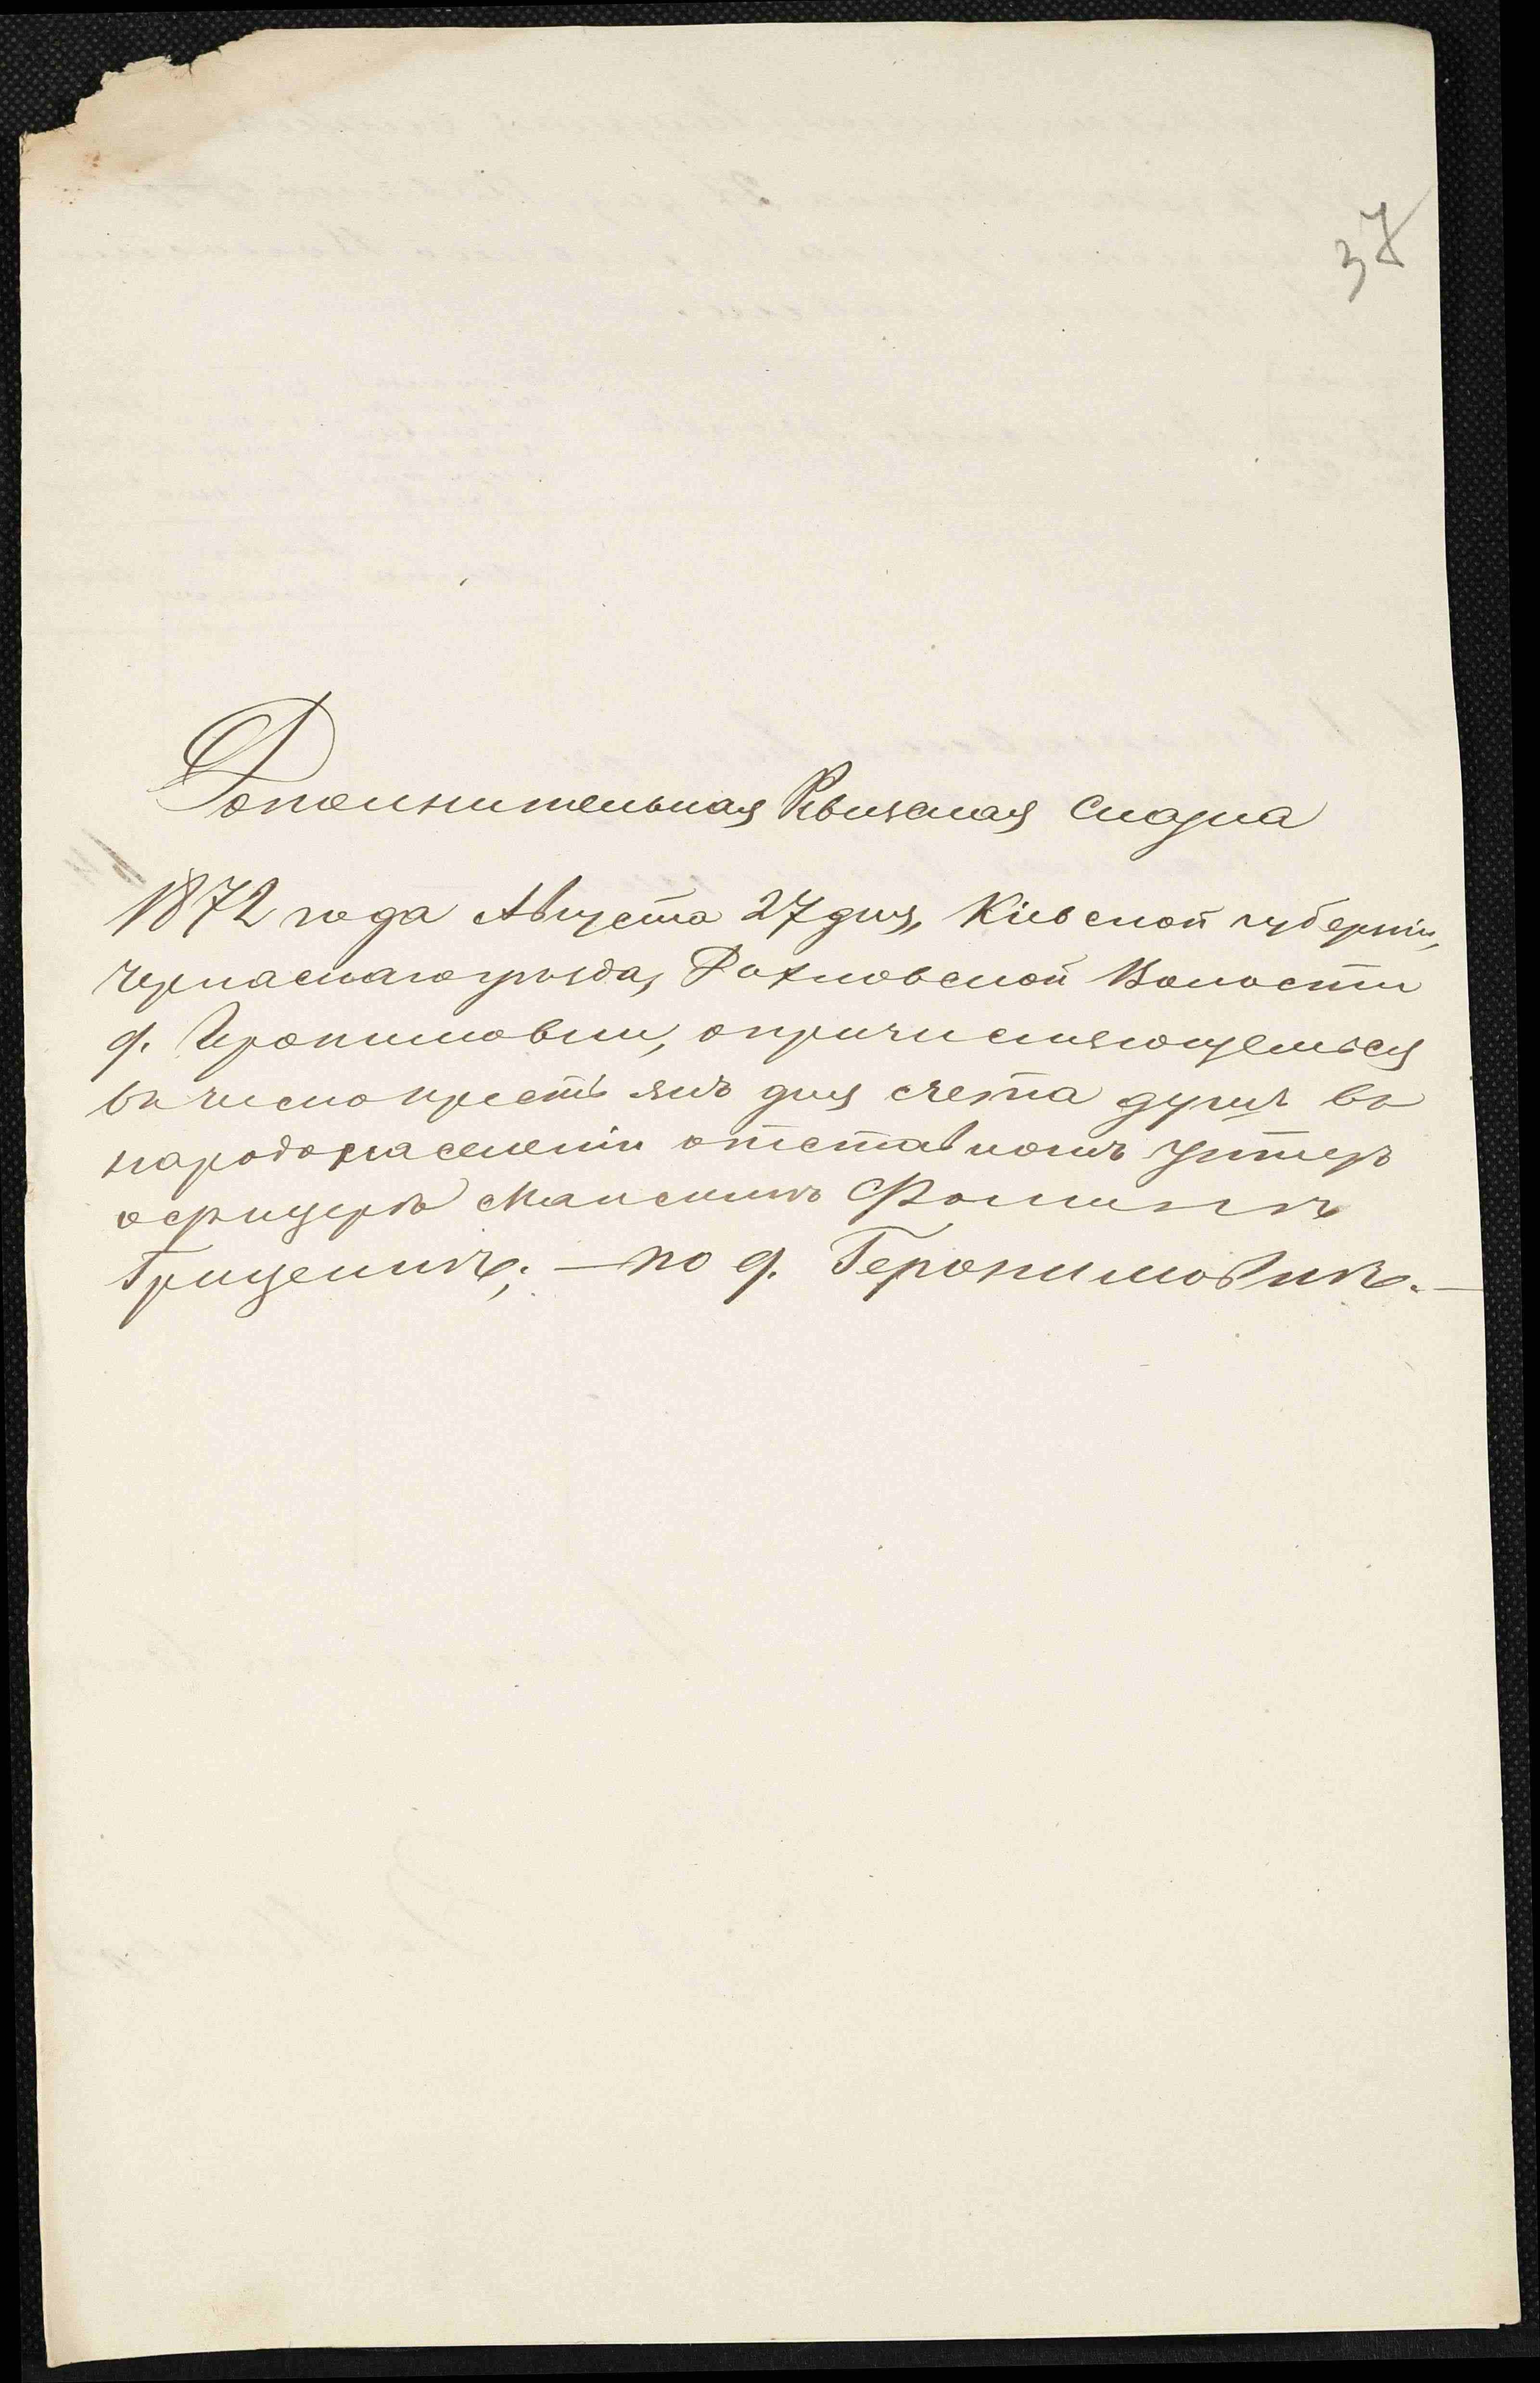 37
Дополнительная Ревизская Сказка
1872 года Августа 27 дня, Кіевской губерніи,
Черкаскаго уѣзда, Дахновской Волости
д. Геронимовки, о причисляющемься
въ число крестьянъ для счета душъ въ
народонаселеніи отставномъ Унтеръ
офицерѣ Максимѣ Фоминѣ
Гриценкѣ; — по д. Геронимовкѣ. —